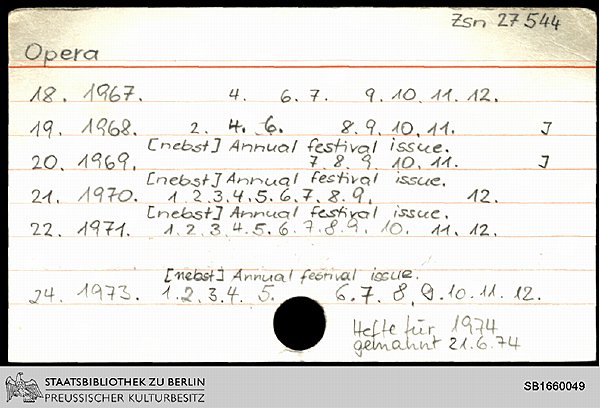 Zsn 27544
Opera
18. 1967. 4. 6. 7. 9. 10. 11. 12.
19. 1968. 2. 4. 6. 8. 9. 10. 11. J
[nebst] Annual festival issue.
20. 1969. 7. 8. 9. 10. 11. J
[nebst] Annual festival issue.
21. 1970. 1. 2. 3. 4. 5. 6. 7. 8. 9. 12.
[nebst] Annual festival issue.
22. 1971. 1. 2. 3. 4. 5. 6. 7. 8. 9. 10. 11. 12.
[nebst] Annual festival issue.
24. 1973. 1. 2. 3. 4. 5. 6. 7. 8. 9. 10. 11. 12.
Hefte für 1974
gemahnt 21.6.74
STAATSBIBLIOTHEK ZU BERLIN
PREUSSISCHER KULTURBESITZ
SB1660049